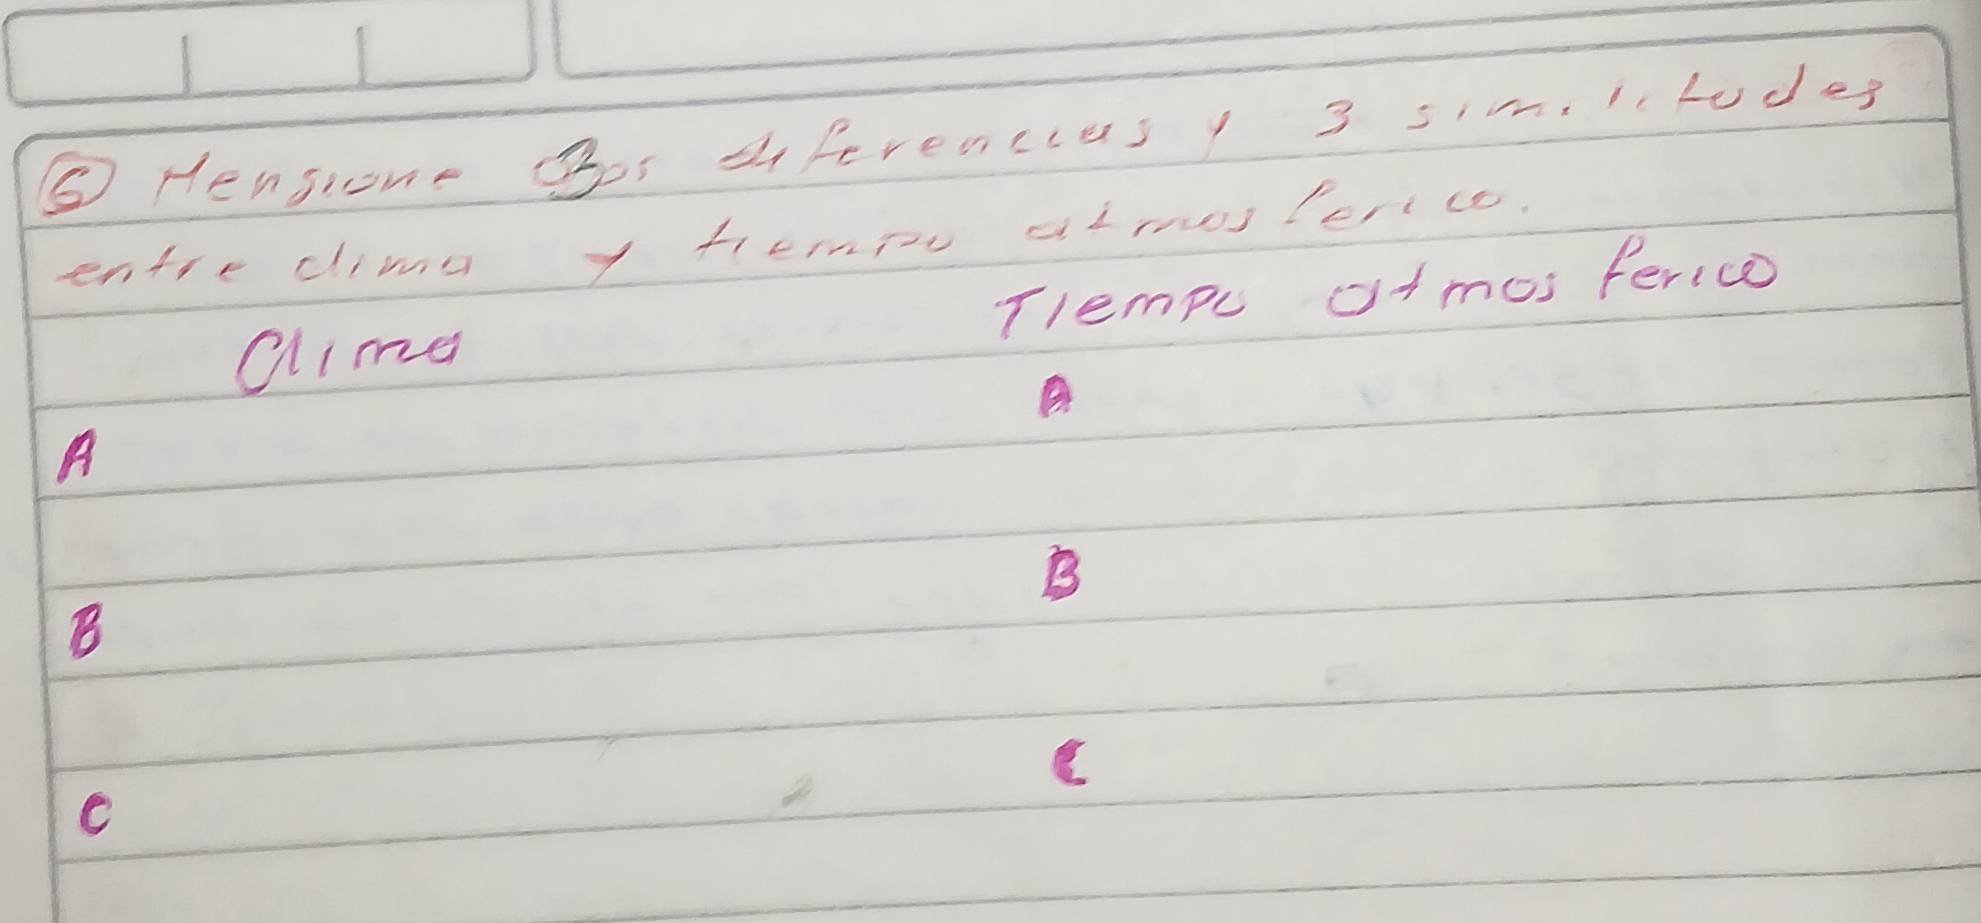 6 Mensione 3 diferencias y 3 similitudes
entre clima y tiempo atmosferico.
Clima Tiempo atmosferico
A A
B B
C C